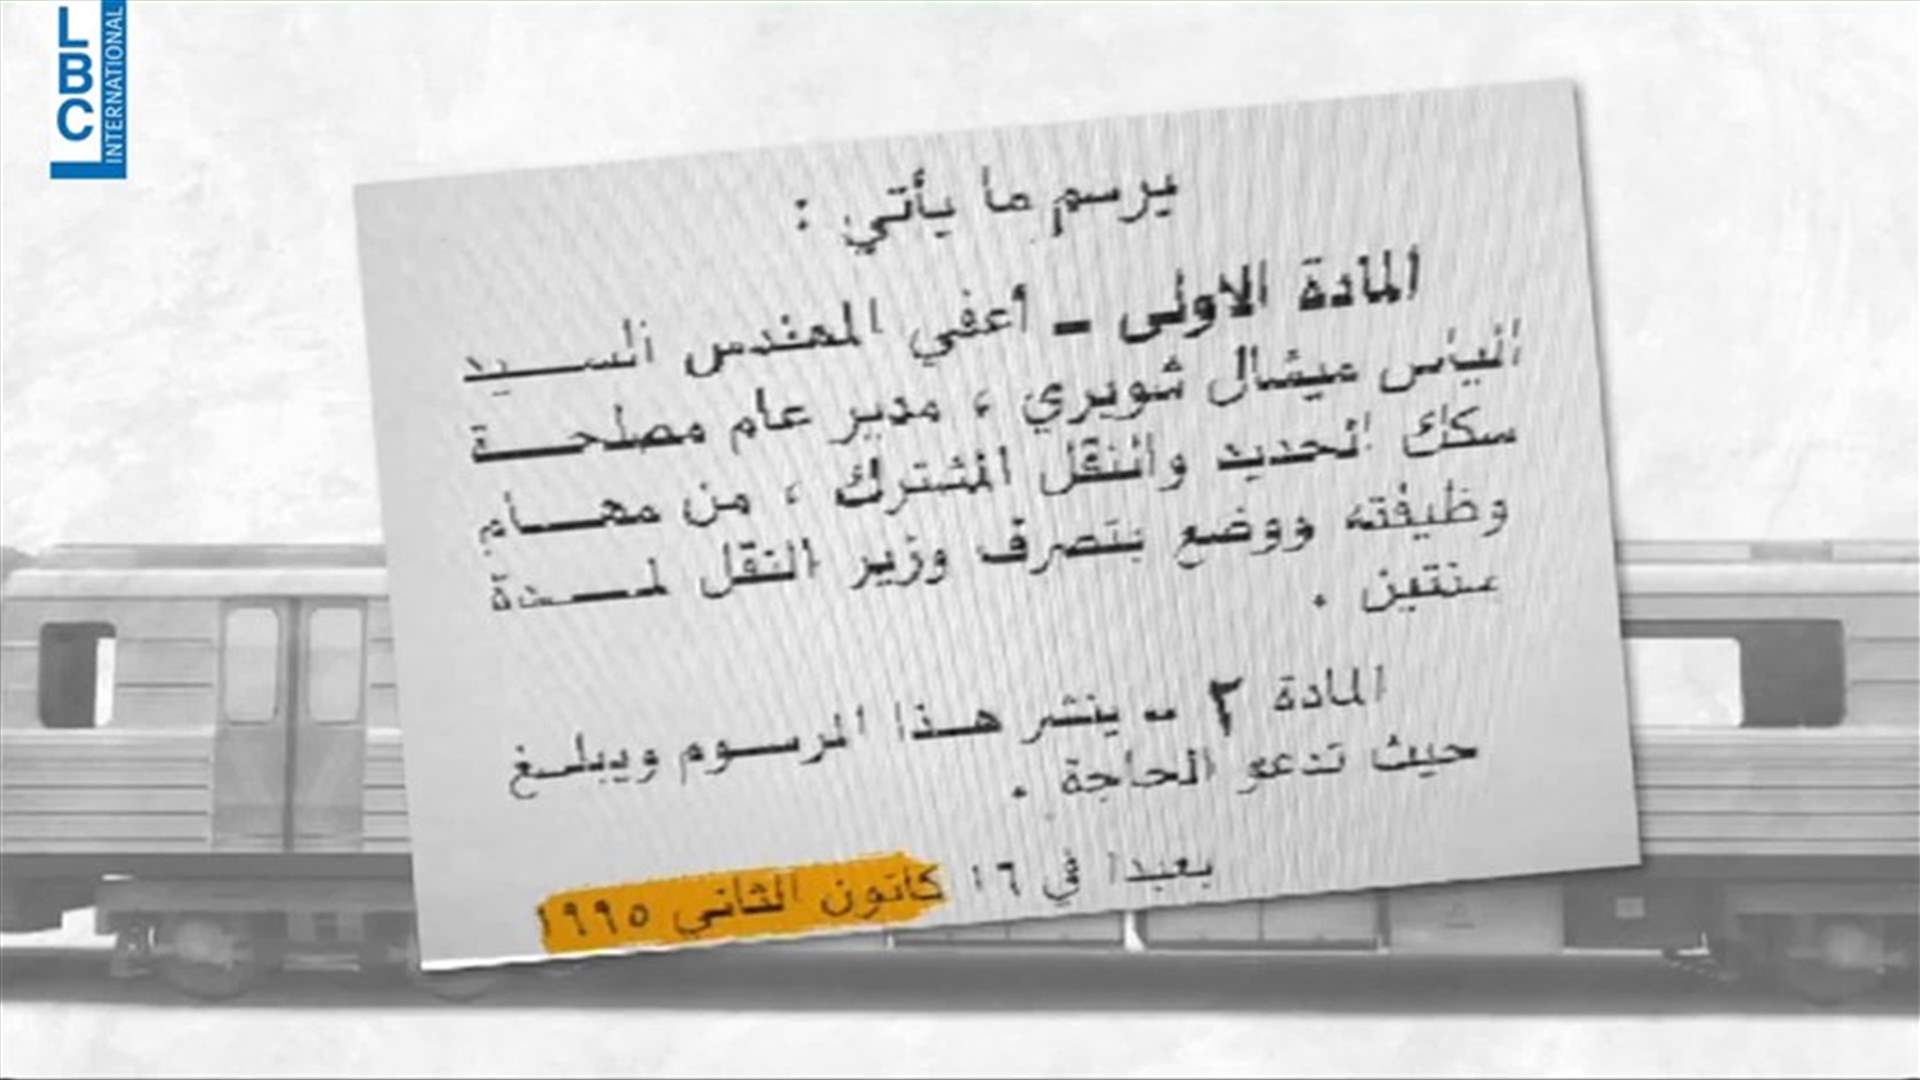 LBC
INTERNATIONAL
يرسم ما يأتي :
المادة الاولى - أعفي المهندس السيد
الياس ميشال شويري ، مدير عام مصلحة
سكك الحديد والنقل المشترك ، من مهام
وظيفته ووضع بتصرف وزير النقل لمدة
سنتين .
المادة ٢ - ينشر هذا المرسوم ويبلغ
حيث تدعو الحاجة .
بعبدا في ١٦ كانون الثاني ١٩٩٥